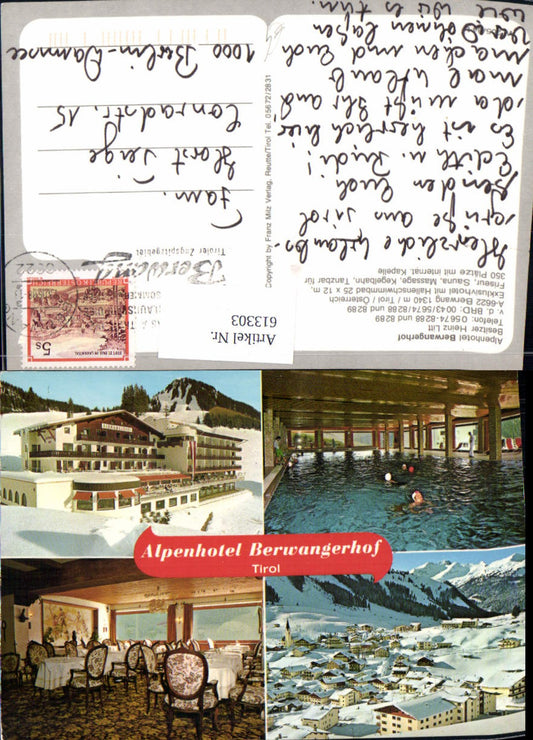 Alpenhotel Berwangerhof
Besitzer Heinz Litt
Telefon 05674-8288 und 8289
v. d. BRD: 0043/5674/8288 und 8289
A-6622 Berwang 1340 m / Tirol / Österreich
Exklusivhotel mit Hallenschwimmbad 25 x 12 m,
Friseur, Sauna, Massage, Kegelbahn, Tanzbar
350 Plätze mit internat. Kapelle
Herzliche Urlaubs-
grüße aus Tirol
senden Euch
Edith u. Rudi!
Es ist herrlich hier
da müßt Ihr auch
mal Urlaub
machen und Euch
verwöhnen lassen
wie wir es tun.
Copyright by Franz Milz Verlag, Reutte/Tirol Tel. 05672/2831
Berwang
Tiroler Zugspitzgebiet
5s
REPUBLIK ÖSTERREICH
Fam.
Horst
Conradstr. 15
1000 Berlin-Wannsee
Artikel Nr.
613303
Alpenhotel Berwangerhof
Tirol